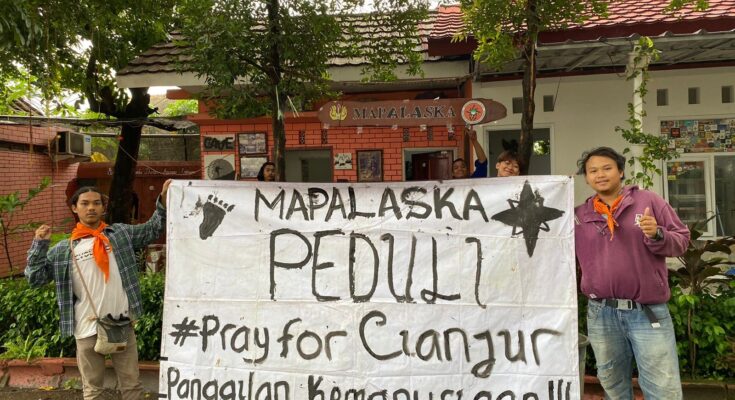 MAPALASKA
MAPALASKA
PEDULI
#Pray for Cianjur
Panggilan Kemanusiaan!!!